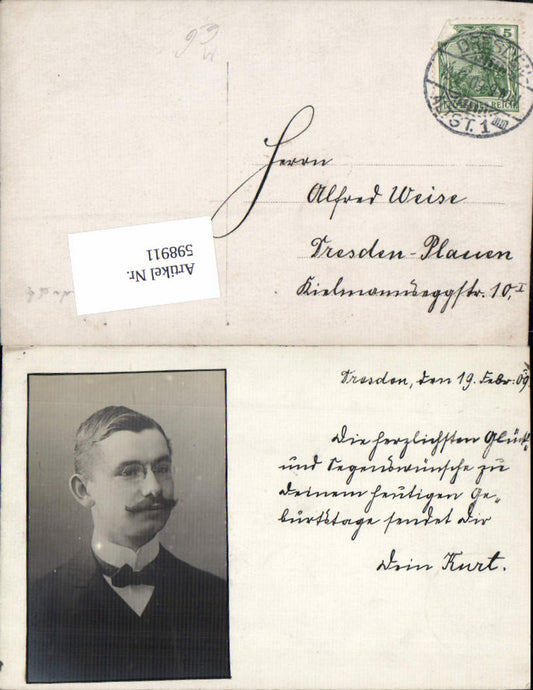 5
DEUTSCHES REICH
DRESDEN
ALTST. 1
Herrn
Alfred Weise
Dresden-Plauen
Kielmannseggstr. 10, I
Artikel Nr.
598911
Dresden, den 19. Febr. 09
Die herzlichsten Glück-
und Segenswünsche zu
Deinem heutigen Ge-
burtstage sendet Dir
Dein Kurt.